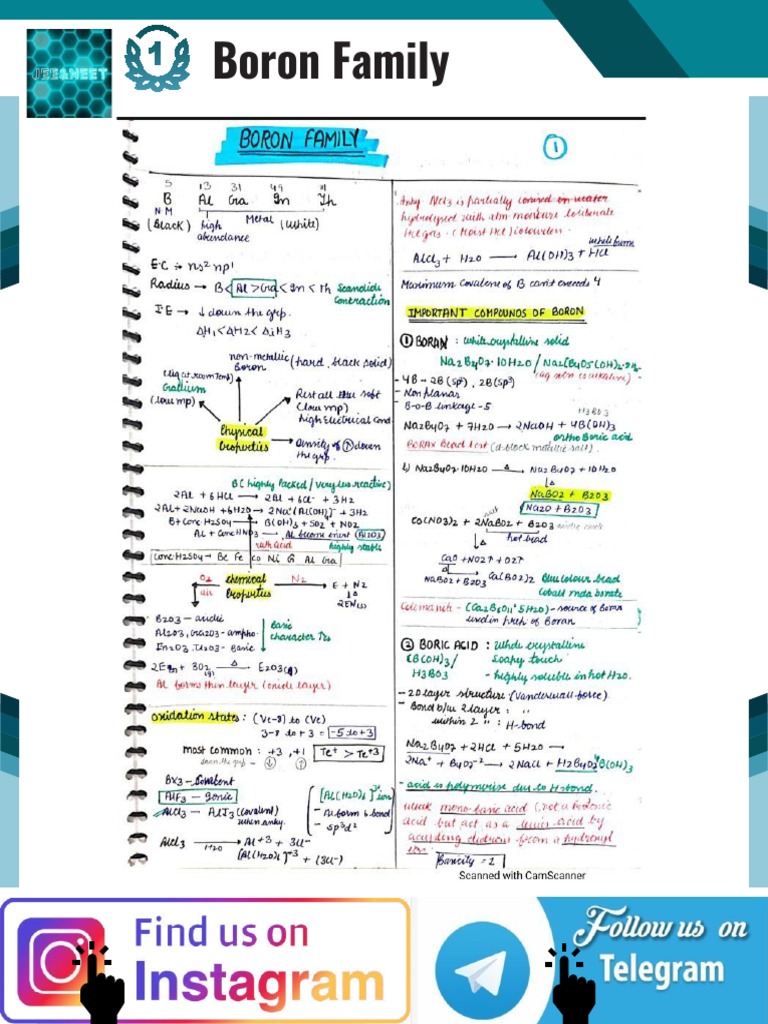 JEE&NEET
1
Boron Family
BORON FAMILY
1
5 13 31 49
B Al Ga In Th
N M Metal
(Black) high (White)
abundance
E.C :- ns² np¹
Radius → B < Al > Ga < In < Th Scandide
Contraction
I.E → ↓ down the grp.
ΔH1 < ΔH2 < ΔiH3
non-metallic (hard black solid)
Boron
(liq at room temp)
Gallium
(low mp)
Rest all are soft
(low mp)
high Electrical Cond
Physical
Properties
Density of ↑ down
the grp.
B (highly Packed / very less reactive)
2Al + 6HCl → 2Al + 6Cl⁻ + 3H2
2Al + 2NaOH + 6H2O → 2Na⁺[Al(OH)4]⁻ + 3H2
B + Conc H2SO4 → B(OH)3 + SO2 + NO2
Al + Conc HNO3 → Al become inert (Al2O3)
with acid highly stable
Conc H2SO4 → Be Fe Co Ni Al Ga
O2
air
chemical
Properties
N2
E + N2
Δ
2EN(s)
B2O3 — acidic
Al2O3, Ga2O3 — ampho.
In2O3, Tl2O3 — Basic
Basic
character ↑es
2E + 3O2 (g) Δ → E2O3(s)
Al forms thin layer (oxide layer)
Oxidation states: (Ve-8) to (Ve)
3-8 to +3 = -5 to +3
most common : +3, +1 Te⁺ > Te⁺3
down the grp - ↓ ↑
BX3 — Covalent
AlF3 — Ionic
AlCl3 — AlI3 (Covalent)
when anhy.
[Al(H2O)6]3+ ion
- Al form 6 bond
- sp³d²
AlCl3 H2O → Al+3 + 3Cl⁻
[Al(H2O)6]+3 + (3Cl⁻)
Anhy. AlCl3 is partially ionised on water
hydrolysed with atm moisture to liberate
HCl gas. (Moist HCl)
white fume
AlCl3 + H2O → Al(OH)3 + HCl
Maximum Covalence of B can't exceeds 4
IMPORTANT COMPOUNDS OF BORON
1 BORAX : white crystalline solid
Na2B4O7·10H2O /
(aq soln is alkaline)
- 4B - 2B (sp²), 2B (sp³)
- Non planar
- B-O-B linkage - 5
H3BO3
Na2B4O7 + 7H2O → 2NaOH + 4B(OH)3
ortho Boric acid
BORAX Bead test (d-block metallic salt).
Na2B4O7·10H2O Δ → Na2B4O7 + 10H2O
↓Δ
NaBO2 + B2O3
Na2O + B2O3
Co(NO3)2 + 2NaBO2 + B2O3
↓Δ hot bead
CoO + NO2↑ + O2↑
NaBO2 + B2O3 Co(BO2)2 Blue colour bead
Cobalt meta borate
Colemanite - (Ca2B6O11·5H2O) - source of Boron
used in prep of Boran
2 BORIC ACID : White crystalline
(B(OH)3/ Soapy touch
H3BO3 - highly soluble in hot H2O.
- 2D layer structure (Vanderwall force)
- Bond b/w 2 layer : "
within 2 " : H-bond
Na2B4O7 + 2HCl + 5H2O →
2Na⁺ + B4O7⁻² → 2NaCl + B(OH)3
- acid is polymerise due to H-bond.
weak mono basic acid (not a protonic
acid but act as a lewis acid by
accepting electrons from a hydroxyl
ion.
Basicity = 1
Scanned with CamScanner
Find us on
Instagram
Follow us on
Telegram